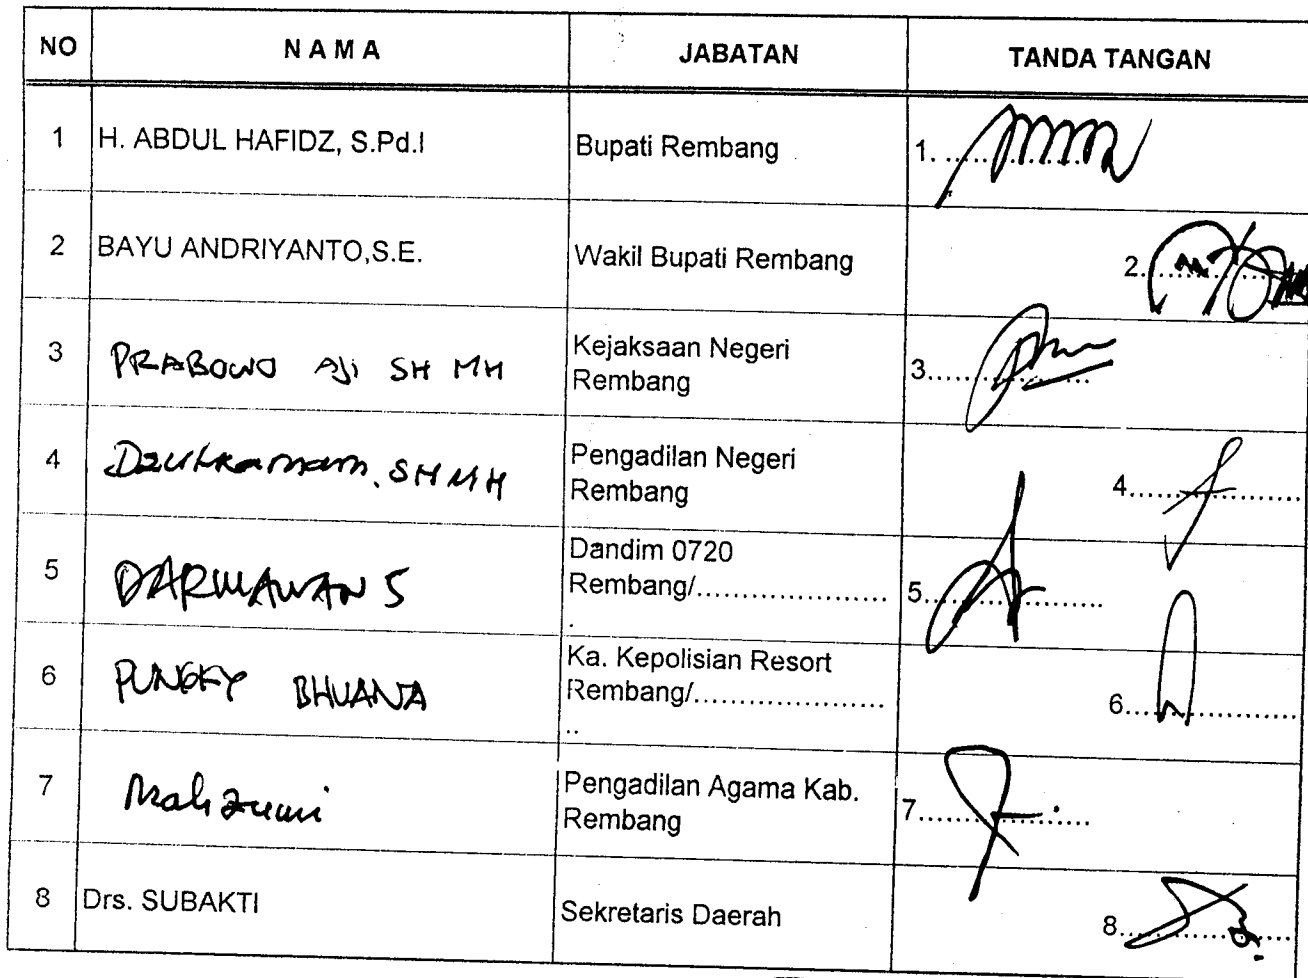 NO NAMA JABATAN TANDA TANGAN
1 H. ABDUL HAFIDZ, S.Pd.I Bupati Rembang 1. ..................
2 BAYU ANDRIYANTO,S.E. Wakil Bupati Rembang 2...................
3 PRABOWO AJi SH MH Kejaksaan Negeri
Rembang 3...................
4 Dzulkarnain, SH MH Pengadilan Negeri
Rembang 4...................
5 DARMAWAN S Dandim 0720
Rembang/......................
. 5...................
6 PUNGKY BHUANA Ka. Kepolisian Resort
Rembang/.....................
.. 6...................
7 Pengadilan Agama Kab.
Rembang 7...................
8 Drs. SUBAKTI Sekretaris Daerah 8...................